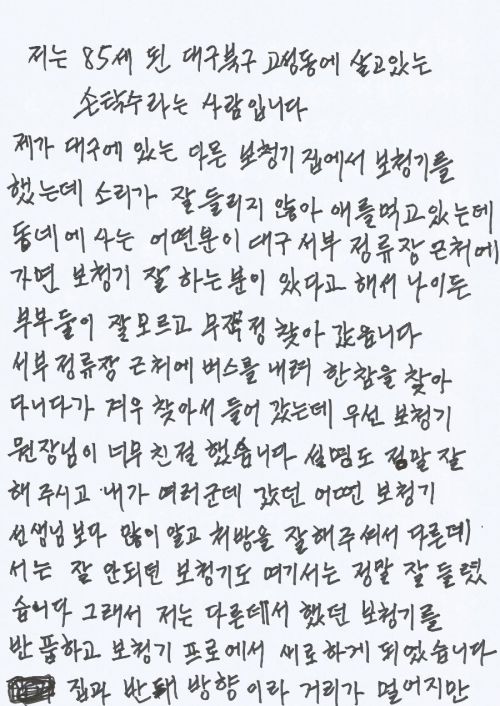 저는 85세 된 대구북구 고성동에 살고있는
손탁수라는 사람입니다
제가 대구에 있는 다른 보청기 집에서 보청기를
했는데 소리가 잘 들리지 않아 애를먹고있는데
동네에 사는 어떤분이 대구 서부 정류장 근처에
가면 보청기 잘 하는분이 있다고 해서 나이든
부부둘이 잘모르고 무작정 찾아 갔읍니다
서부정류장 근처에 버스를 내려 한참을 찾아
다니다가 겨우 찾아서 들어 갔는데 우선 보청기
원장님이 너무 친절 했습니다 설명도 정말 잘
해 주시고 내가 여러군데 갔던 어떤 보청기
선생님보다 많이 알고 처방을 잘해주셔서 다른데
서는 잘 안되던 보청기도 여기서는 정말 잘 들렸
습니다 그래서 저는 다른데서 했던 보청기를
반품하고 보청기 프로에서 새로하게 되었습니다
집과 반대 방향이라 거리가 멀어지만